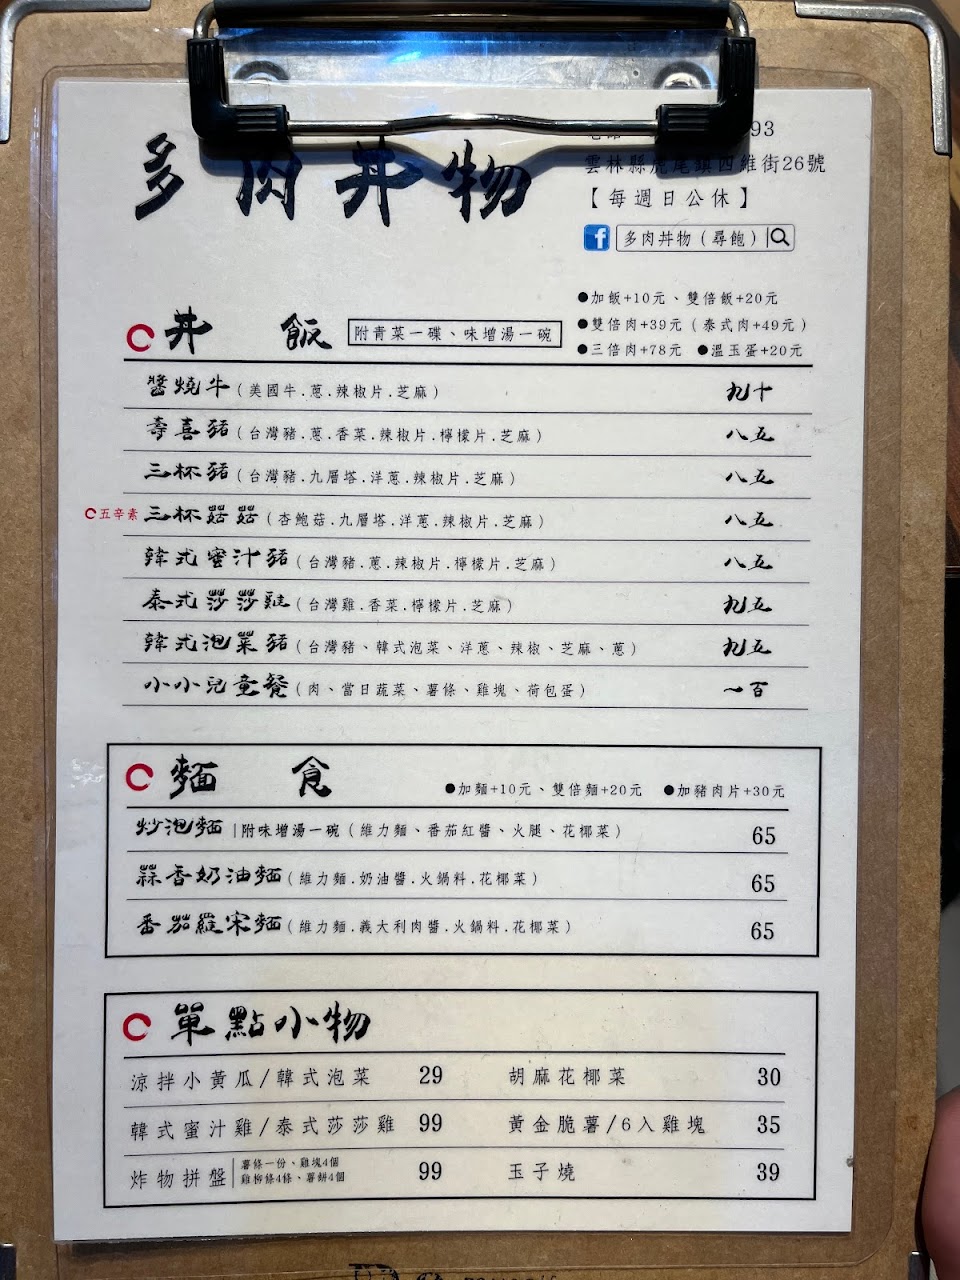 多肉丼物
93
雲林縣虎尾鎮四維街26號
【每週日公休】
多肉丼物(尋飽)
丼飯 附青菜一碟、味增湯一碗
●加飯+10元、雙倍飯+20元
●雙倍肉+39元(泰式肉+49元)
●三倍肉+78元 ●溫玉蛋+20元
醬燒牛(美國牛.蔥.辣椒片.芝麻) 九十
壽喜豬(台灣豬.蔥.香菜.辣椒片.檸檬片.芝麻) 八五
三杯豬(台灣豬.九層塔.洋蔥.辣椒片.芝麻) 八五
五辛素 三杯菇菇(杏鮑菇.九層塔.洋蔥.辣椒片.芝麻) 八五
韓式蜜汁豬(台灣豬.蔥.辣椒片.檸檬片.芝麻) 八五
泰式莎莎雞(台灣雞.香菜.檸檬片.芝麻) 九五
韓式泡菜豬(台灣豬、韓式泡菜、洋蔥、辣椒、芝麻、蔥) 九五
小小兒童餐(肉、當日蔬菜、薯條、雞塊、荷包蛋) 一百
麵食 ●加麵+10元、雙倍麵+20元 ●加豬肉片+30元
炒泡麵|附味增湯一碗(維力麵、番茄紅醬、火腿、花椰菜) 65
蒜香奶油麵(維力麵.奶油醬.火鍋料.花椰菜) 65
番茄羅宋麵(維力麵.義大利肉醬.火鍋料.花椰菜) 65
單點小物
涼拌小黃瓜/韓式泡菜 29 胡麻花椰菜 30
韓式蜜汁雞/泰式莎莎雞 99 黃金脆薯/6入雞塊 35
炸物拼盤 薯條一份、雞塊4個 99 玉子燒 39
雞柳條4條、薯餅4個